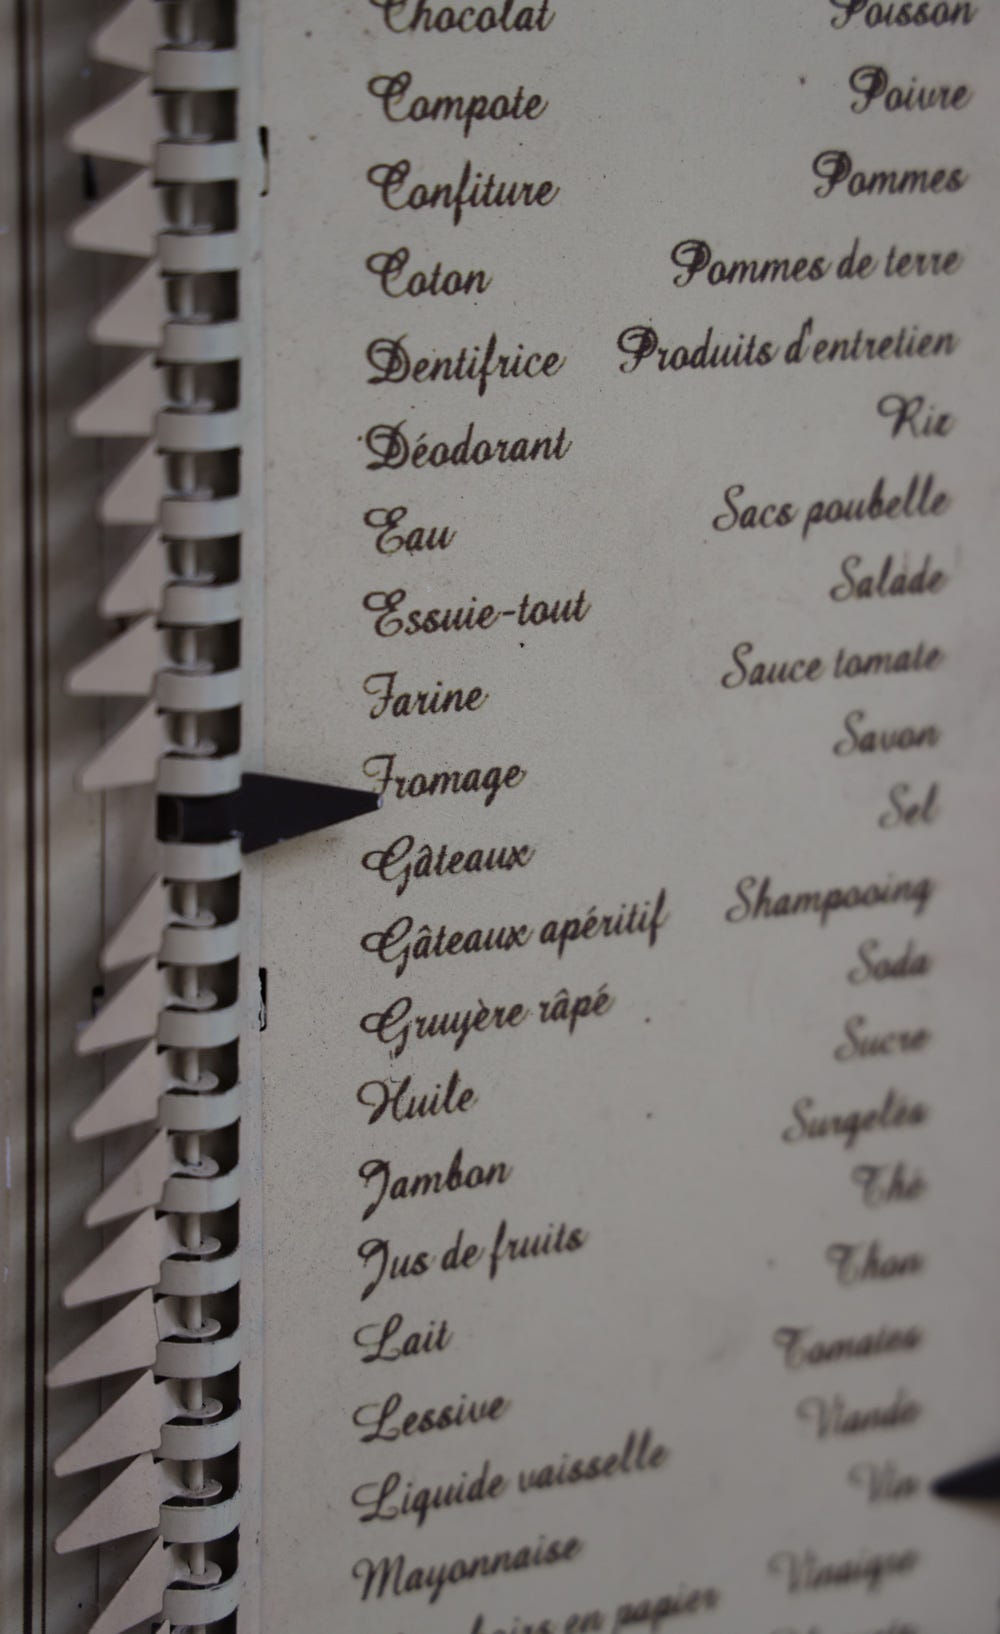 Chocolat
Compote
Confiture
Coton
Dentifrice
Déodorant
Eau
Essuie-tout
Farine
Fromage
Gâteaux
Gâteaux apéritif
Gruyère râpé
Huile
Jambon
Jus de fruits
Lait
Lessive
Liquide vaisselle
Mayonnaise
en papier
Poisson
Poivre
Pommes
Pommes de terre
Produits d'entretien
Riz
Sacs poubelle
Salade
Sauce tomate
Savon
Sel
Shampooing
Soda
Sucre
Surgelés
Thé
Thon
Tomates
Viande
Vin
Vinaigre